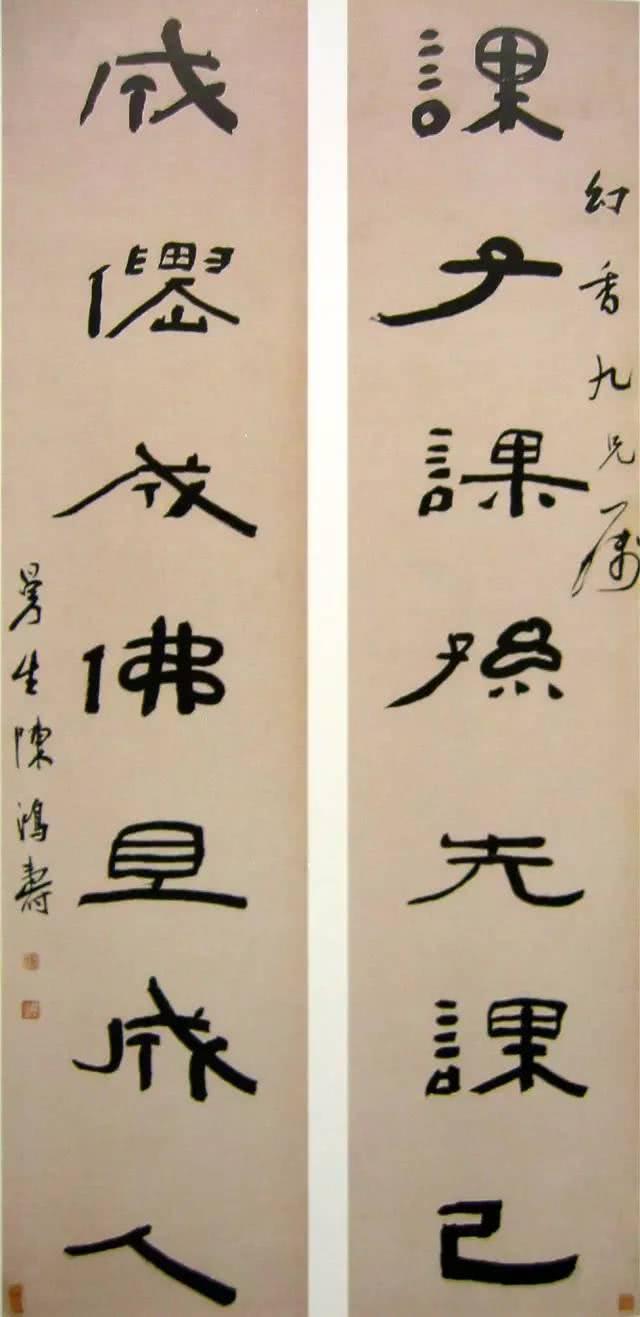 幻香九兄屬
課子課孫先課己
成僊成佛且成人
曼生陳鴻壽